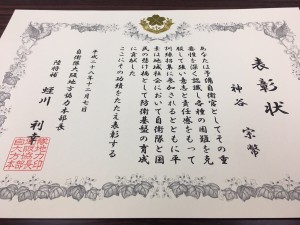 表彰状
神谷 宗幣
あなたは予備自衛官としてその重
要性を深く認識し各種の困難を克
服して強い意志と責任感をもって
訓練招集に参加されるとともに平
素は地域社会において自衛隊と国
民の懸け橋として防衛基盤の育成
に貢献した
ここにその功績をたたえ表彰する
平成二十八年十二月七日
自衛隊大阪地方協力本部長
陸将補 蛭川 利幸